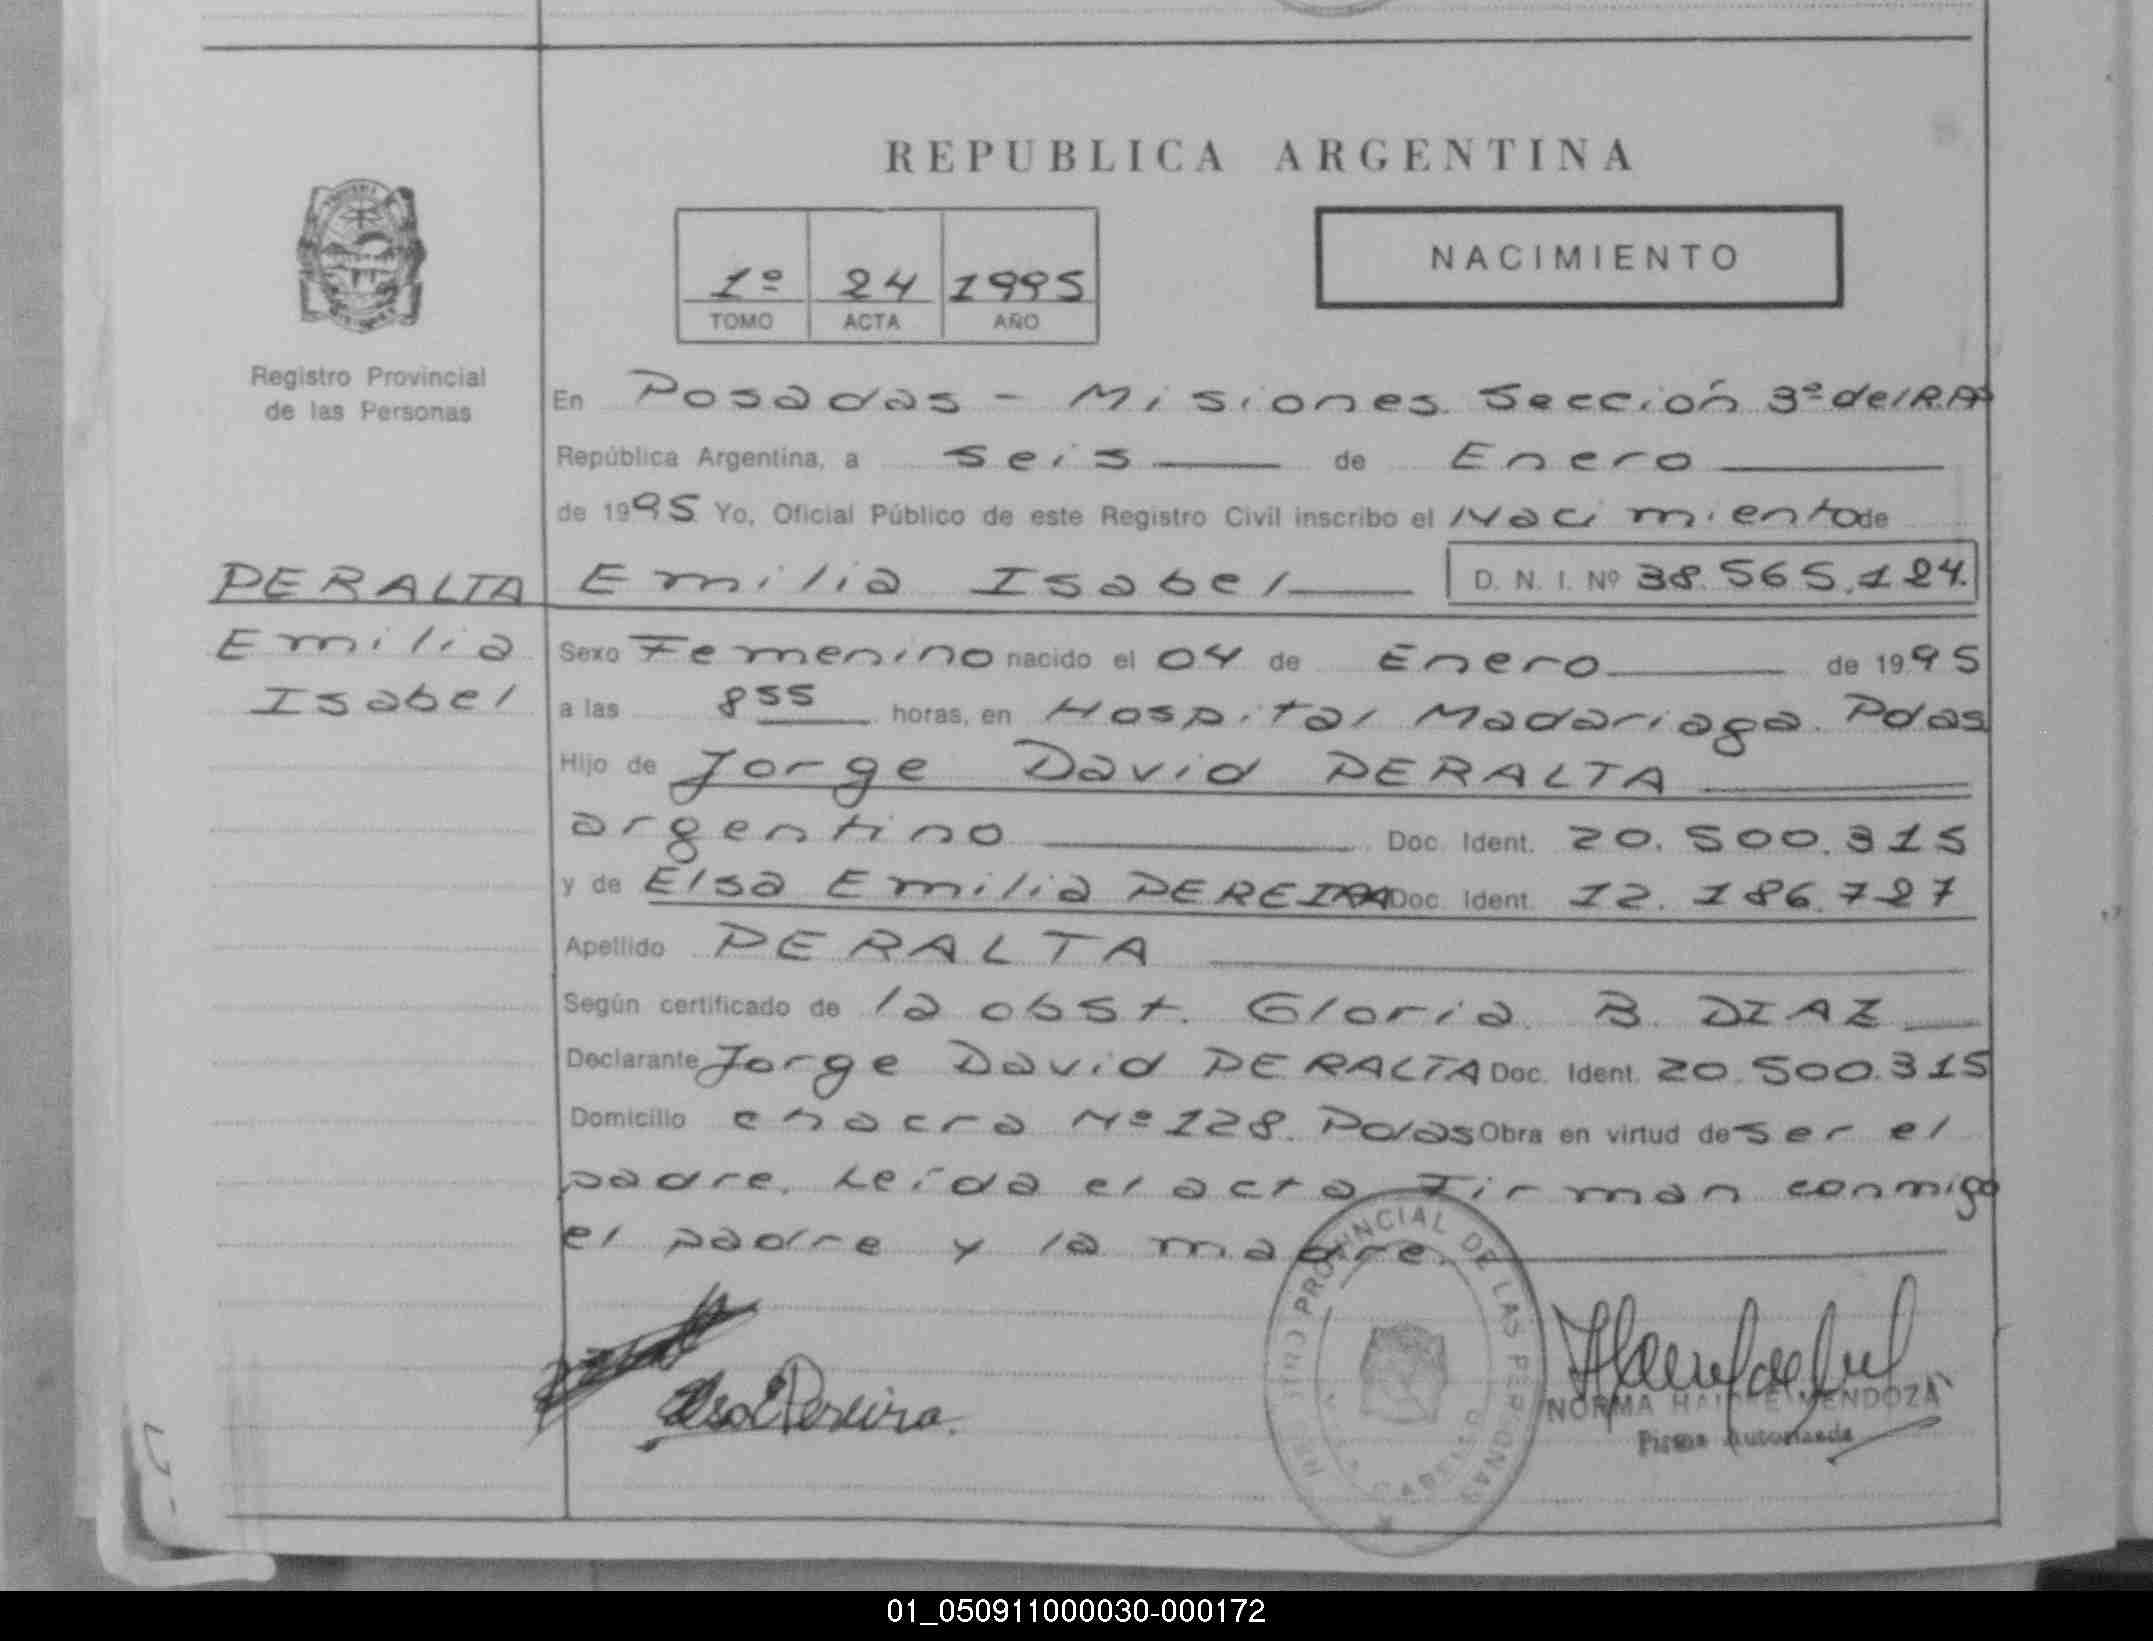 REPUBLICA ARGENTINA
1º 24 1995
TOMO ACTA AÑO
NACIMIENTO
Registro Provincial
de las Personas
En Posadas - Misiones. Sección 3º del R.P.
República Argentina, a seis de Enero
de 1995 Yo, Oficial Público de este Registro Civil inscribo el Nacimiento de
PERALTA Emilia Isabel D. N. I. Nº 38.565.124.
Emilia
Isabel
Sexo Femenino nacido el 04 de Enero de 1995
a las 8 55 horas, en Hospital Madariaga. Pdas
Hijo de Jorge David PERALTA
argentino Doc. Ident. 20.500.315
y de Elsa Emilia PEREIRA Doc. Ident. 12.186.727
Apellido PERALTA
Según certificado de la obst. Gloria B. DIAZ
Declarante Jorge David PERALTA Doc. Ident. 20.500.315
Domicilio chacra Nº 128. Pdas Obra en virtud de ser el
padre. Leída el acta Firman conmigo
el padre y la madre.
REGISTRO PROVINCIAL DE LAS PERSONAS
Elsa E Pereira.
NORMA HAIDEE MENDOZA
Firma Autorizada
01_050911000030-000172